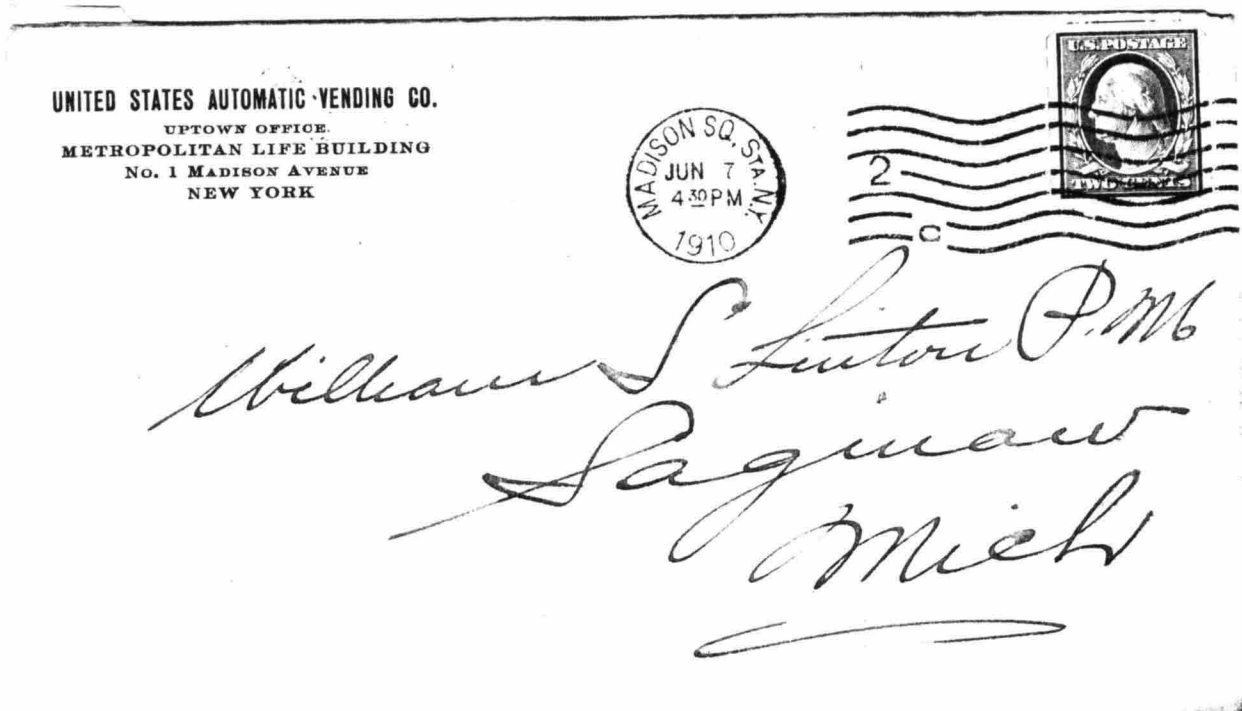 UNITED STATES AUTOMATIC VENDING CO.
UPTOWN OFFICE
METROPOLITAN LIFE BUILDING
No. 1 MADISON AVENUE
NEW YORK
MADISON SQ. STA. N.Y.
JUN 7
4 30 PM
1910
2
C
U.S. POSTAGE
TWO CENTS
William S Linton P.M
Saginaw
Mich